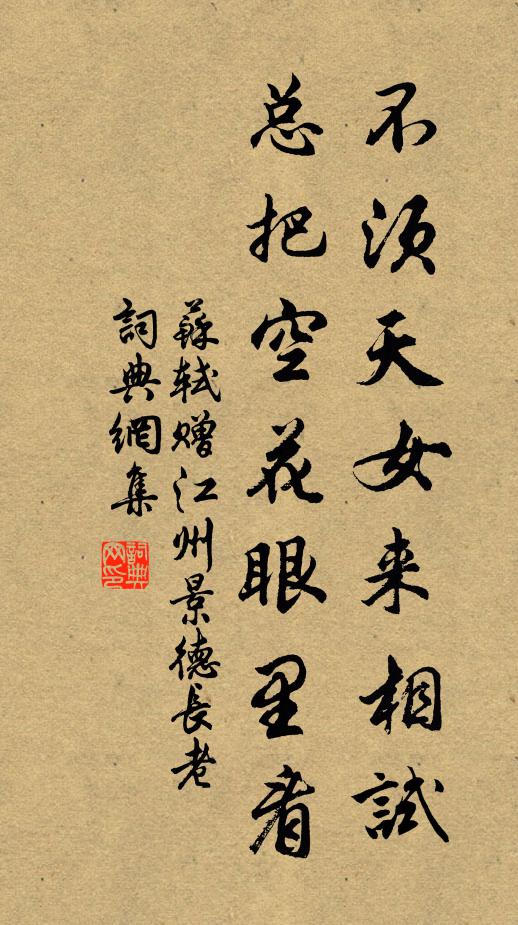 不须天女来相試
总把空花眼里看
蘇軾赠江州景德長老
詞典網集
詞典
网印